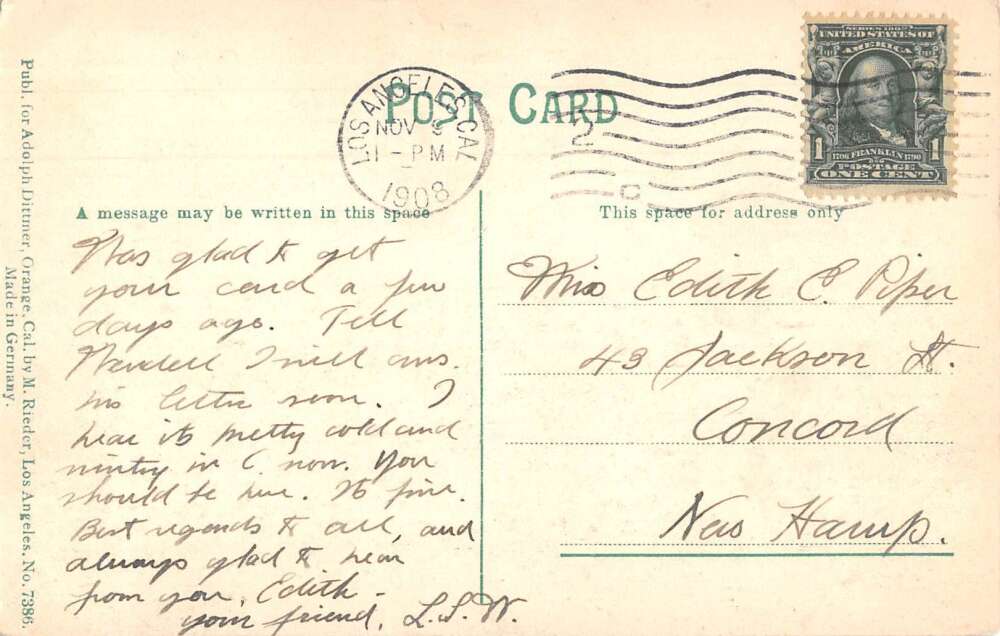 POST CARD
LOS ANGELES, CAL
NOV 9
1 - PM
1908
2
C
SERIES 1902
UNITED STATES OF
AMERICA
1 1706 FRANKLIN 1790 1
POSTAGE
ONE CENT
A message may be written in this space
This space for address only
Was glad to get
your card a few
days ago. Tell
Wendell I will ans.
his letter soon. I
hear its pretty cold and
wintry in C. now. You
should be here. Its fine.
Best regards to all, and
always glad to hear
from you, Edith -
your friend, L.S.W.
Miss Edith E. Piper
43 Jackson St.
Concord
New Hamp.
Publ. for Adolph Dittmer, Orange, Cal. by M. Rieder, Los Angeles. No. 7386.
Made in Germany.